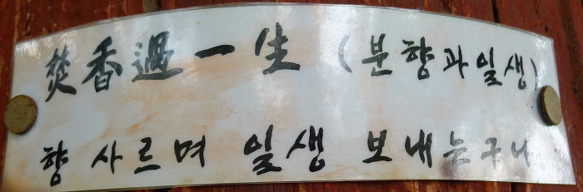 焚香過一生 (분향과일생)
향 사르며 일생 보내는구나